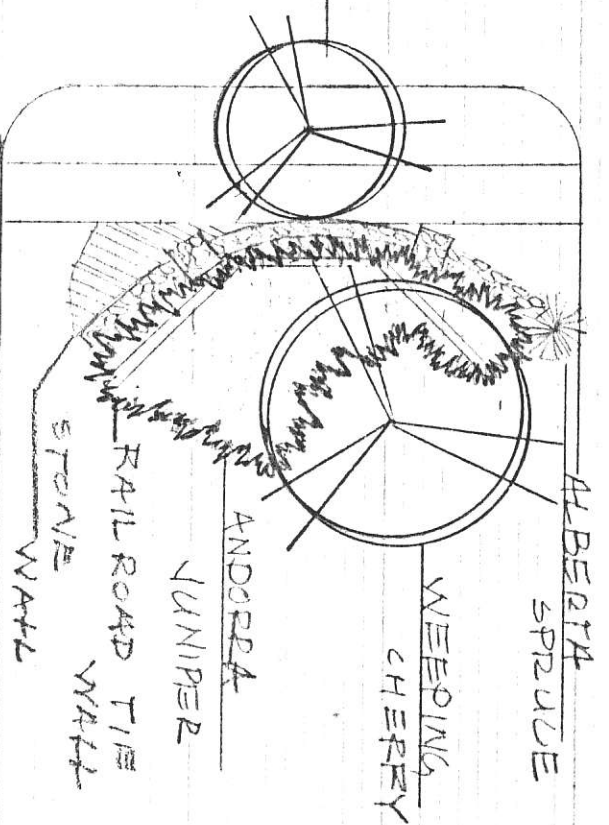 ALBERTA
SPRUCE
WEEPING
CHERRY
ANDORRA
JUNIPER
RAILROAD TIE
WALL
STONE
WALL